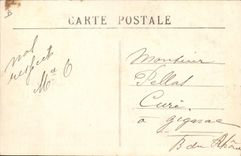 CARTE POSTALE
nos
respects
Monsieur
Pellat
Curé
a Gignac
B du Rhône